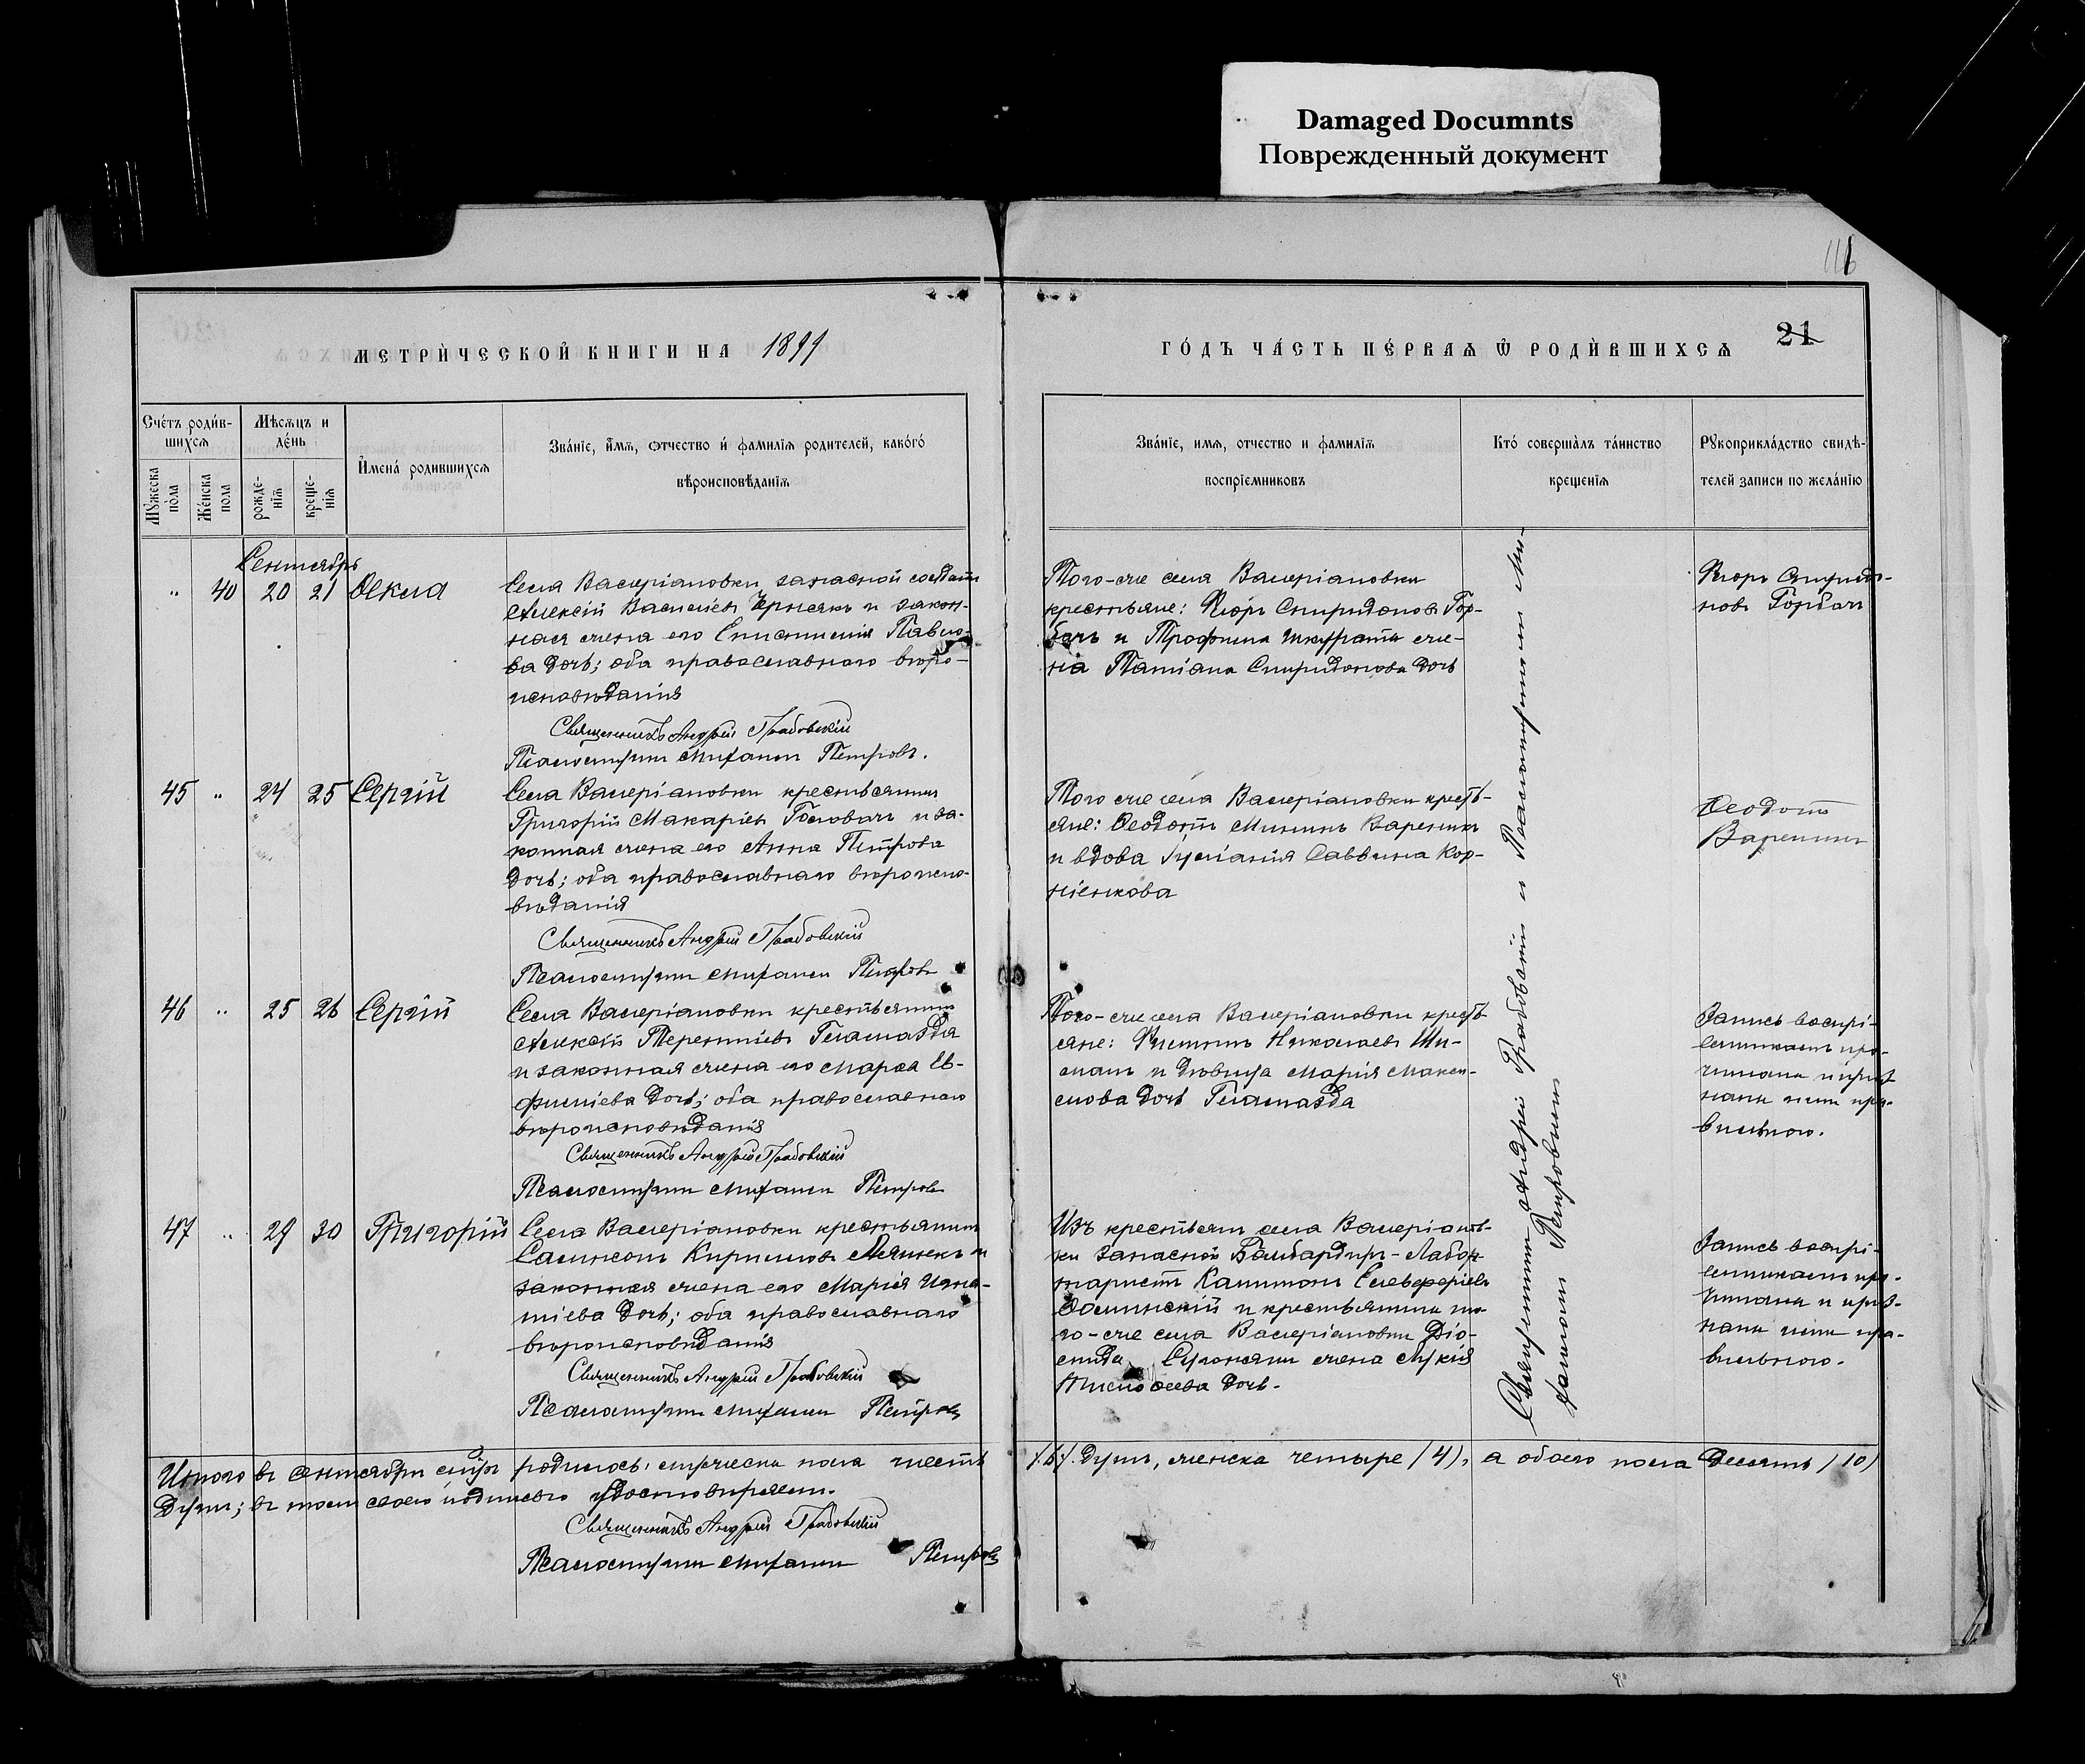 Damaged Documnts
Поврежденный документ
116
21
МЕТРИЧЕСКОЙ КНИГИ НА 1899
ГОДЪ ЧАСТЬ ПЕРВАЯ Ѡ РОДИВШИХСЯ
Счетъ родив-
шихся
Мѣсяцъ и
день
Мужеска
пола
Женска
пола
рожде-
нія
креще-
нія
Имена родившихся
Званіе, имя, отчество и фамилія родителей, какого
вѣроисповѣданія
Званіе, имя, отчество и фамилія
воспріемниковъ
Кто совершалъ таинство
крещенія
Рукоприкладство свидѣ-
телей записи по желанію
Сентябрь
" 40 20 21 Ѳекла
Села Валеріановки запасной солдатъ
Алексій Василіевъ Чернякъ и закон-
ная жена его Епистимія Павло-
ва дочь; оба православнаго вѣро-
исповѣданія
Священникъ Андрей Грабовскій
Псаломщикъ Михаилъ Петровъ.
Того-же села Валеріановки
крестьяне: Спиридоновъ Гор-
бачъ и Трофима Шкурата же-
на Татіана Спиридонова дочь
Спиридо-
новъ Горбачъ
45 " 24 25 Сергій
Села Валеріановки крестьянинъ
Григорій Макаріевъ Головачъ и за-
конная жена его Анна Петрова
дочь; оба православнаго вѣроиспо-
вѣданія
Священникъ Андрей Грабовскій
Псаломщикъ Михаилъ Петровъ
Того же села Валеріановки кресть-
яне: Ѳеодотъ Мининъ Вареникъ
и вдова Іуліанія Саввина Кор-
ніенкова
Ѳеодотъ
Вареникъ
46 " 25 26 Сергій
Села Валеріановки крестьянинъ
Алексій Терентіевъ Гламазда
и законная жена его Марѳа Ев-
фиміева дочь; оба православнаго
вѣроисповѣданія
Священникъ Андрей Грабовскій
Псаломщикъ Михаилъ Петровъ
Того-же села Валеріановки кресть-
яне: Филиппъ Николаевъ
и дѣвица Марія Макси-
мова дочь Гламазда
Запись воспрі-
емникамъ про-
читана и приз-
нана ими пра-
вильною.
47 " 29 30 Григорій
Села Валеріановки крестьянинъ
Сампсонъ Кирилловъ и
законная жена его Марія Игна-
тіева дочь; оба православнаго
вѣроисповѣданія
Священникъ Андрей Грабовскій
Псаломщикъ Михаилъ Петровъ
Изъ крестьянъ села Валеріанов-
ки запасной Бомбардиръ-Лабо-
Капитонъ Елевферіевъ
и крестьянина то-
го-же села Валеріановки Діо-
мида жена Лукія
Тимоѳеева дочь.
Запись воспрі-
емникамъ про-
читана и приз-
нана ими пра-
вильною.
Священникъ Андрей Грабовскій и Псаломщикъ Ми-
хаилъ Петровъ
Итого въ сентябрѣ мцѣ родилось: мужеска пола шесть /6/. душъ, женска четыре /4/, а обоего пола десять /10/
душъ; въ чемъ своею подписью удостовѣряемъ.
Священникъ Андрей Грабовскій
Псаломщикъ Михаилъ Петровъ